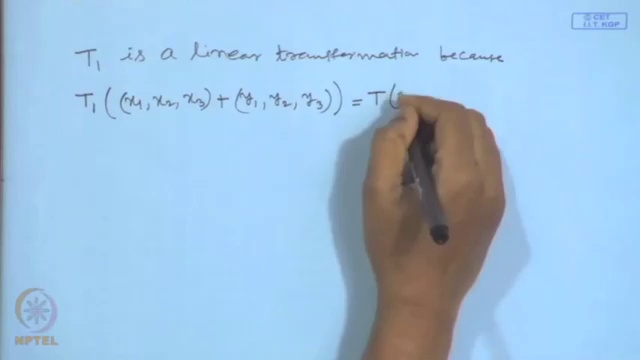 © CET
I.I.T. KGP
T₁ is a linear transformation because
T₁((x₁, x₂, x₃) + (y₁, y₂, y₃)) = T(
NPTEL